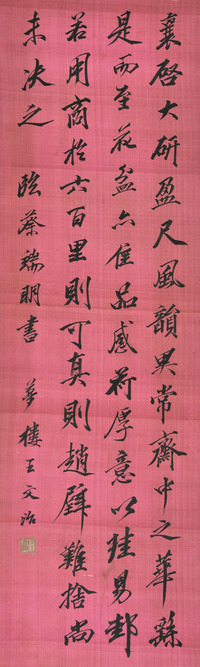 襄啓大研盈尺風韻異常齋中之華繇
是而至花盆亦佳品感荷厚意以珪易邽
若用商於六百里則可真則趙璧難捨尚
未决之 臨蔡端明書 夢樓王文治